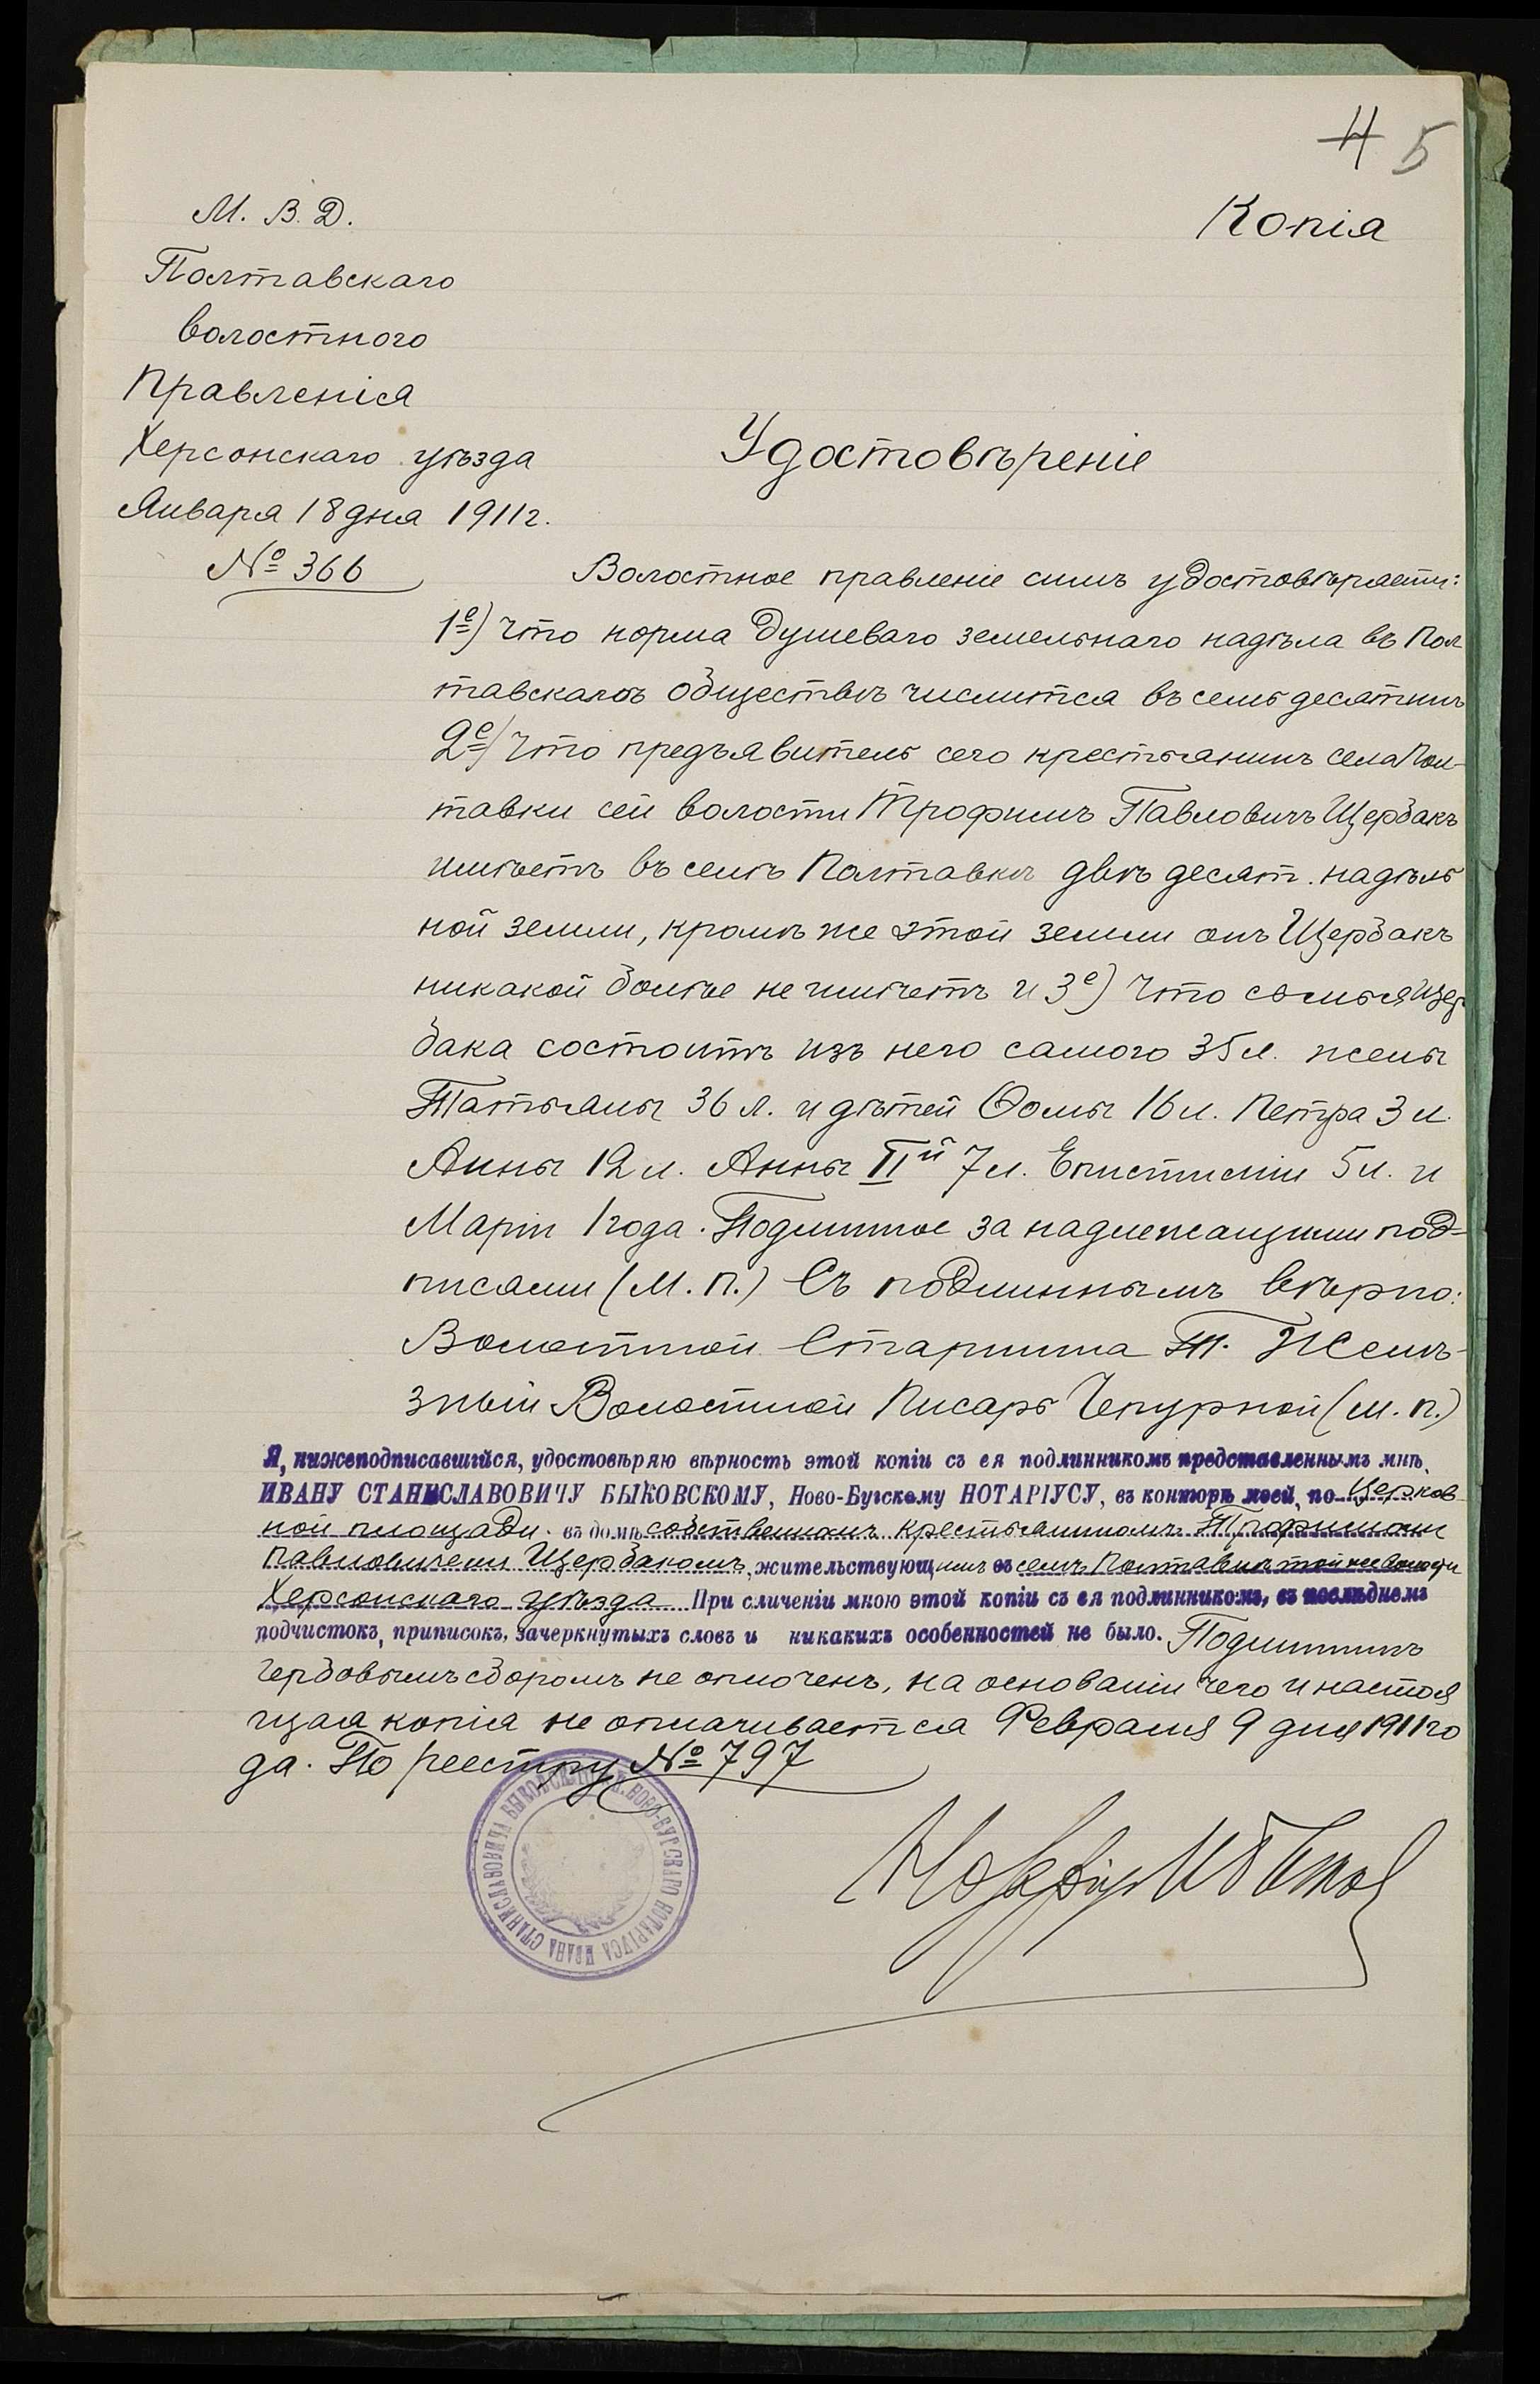 4 5
М. В. Д.
Копія
Полтавскаго
волостного
Правленія
Херсонскаго уѣзда
Удостовѣреніе
Января 18 дня 1911 г.
№ 366
Волостное правленіе симъ удостовѣряетъ:
1е) Что норма душеваго земельнаго надѣла въ Пол
тавскомъ обществѣ числится въ семь десятинъ
2е) Что предъявитель сего крестьянинъ села Пол-
тавки сей волости Трофимъ Павловичъ Щербакъ
имѣетъ въ селѣ Полтавкѣ двѣ десят. надѣль
ной земли, кромѣ же этой земли онъ Щербакъ
никакой болѣе не имѣетъ и 3е) Что семья Щер
бака состоитъ изъ него самого 35 л. жены
Татьяны 36 л. и дѣтей Ѳомы 16 л. Петра 3 л.
Анны 12 л. Анны IIй 7 л. Епистиміи 5 л. и
Маріи 1 года. Подлинное за надлежащими под-
писами (М. П.) Съ подлиннымъ вѣрно:
Волостной Старшина Т. Желѣ-
зный Волостной Писарь Чепурной (М. П.)
Я, нижеподписавшійся, удостовѣряю вѣрность этой копіи съ ея подлинникомъ представленнымъ мнѣ,
ИВАНУ СТАНИСЛАВОВИЧУ БЫКОВСКОМУ, Ново-Бугскому НОТАРІУСУ, въ конторѣ моей, по Церков
ной площади въ домѣ собственномъ крестьяниномъ Трофимомъ
Павловичемъ Щербакомъ, жительствующимъ въ селѣ Полтавкѣ той же волости
Херсонскаго уѣзда При сличеніи мною этой копіи съ ея подлинникомъ, въ послѣднемъ
подчистокъ, приписокъ, зачеркнутыхъ словъ и никакихъ особенностей не было. Подлинникъ
гербовымъ сборомъ не оплоченъ, на основаніи чего и настоя
щая копія не оплачивается Февраля 9 дня 1911 го
да. По реестру № 797
ИВАНА СТАНИСЛАВОВИЧА БЫКОВСКАГО НОВО-БУГСКАГО НОТАРІУСА